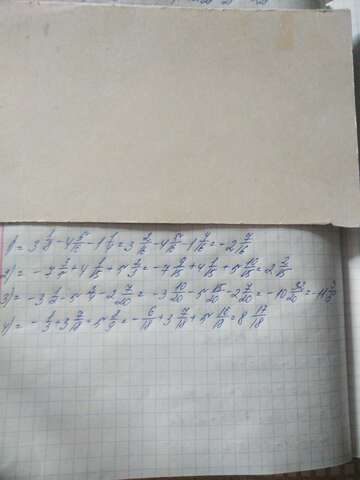 1) = 3 1/8 - 4 5/16 - 1 1/4 = 3 2/16 - 4 5/16 - 1 4/16 = -2 7/16
2) = -7 3/5 + 4 1/15 + 5 2/3 = -7 9/15 + 4 1/15 + 5 10/15 = 2 2/15
3) = -3 1/2 - 5 3/4 - 2 7/20 = -3 10/20 - 5 15/20 - 2 7/20 = -10 32/20 = -11 3/5
4) = -1/3 + 3 7/18 + 5 8/9 = -6/18 + 3 7/18 + 5 16/18 = 8 17/18